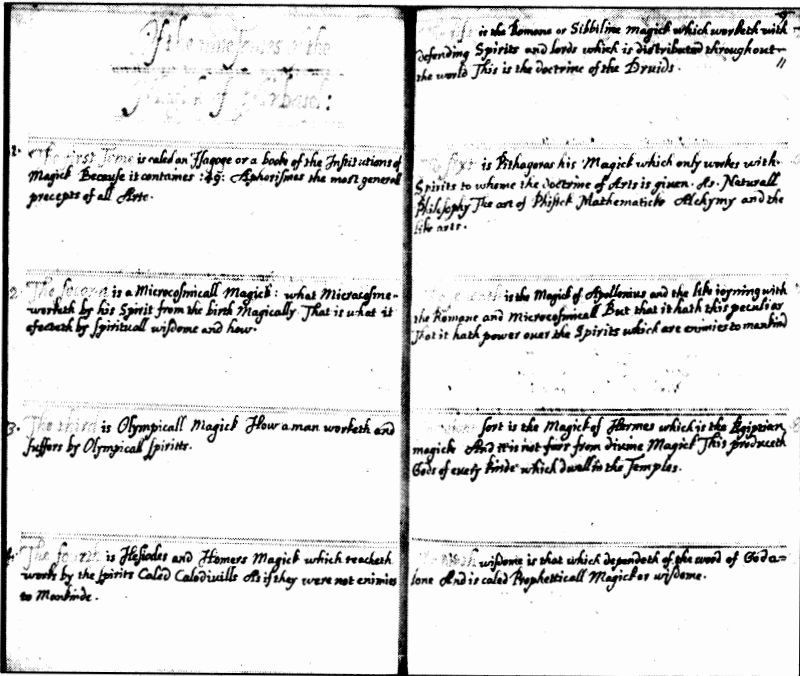 Of the nine Tomes of the
Magick of Arbatel:
1. The first Tome is caled an Isagoge or a booke of the Institutions of
Magick Because it containes :49: Aphorismes the most general
precepts of all Arte.
2. The second is a Microcosmicall Magick: what Microcosme-
worketh by his Spirit from the birth Magically That is what it
efecteth by spirituall wisdome and how.
3. The third is Olympicall Magick How a man worketh and
suffers by Olympicall spirits.
4. The fourth is Hesiodes and Homers Magick which teacheth
works by the spirits Caled Calodivills As if they were not enimies
to Mankinde.
is the Romane or Sibbiline magick which worketh with
defending Spirits and lords which is distributed throughout
the world This is the doctrine of the Druids.
sixt is Pithagoras his Magick which only workes with
Spirits to whome the doctrine of Arts is given. As. Naturall
Philosophy The art of Phisick Mathematicks Alchymy and the
like arts.
is the Magick of Apollonius and the like ioyning with
the Romane and Microcosmicall But that it hath this peculiar
That it hath power over the Spirits which are enimies to mankind
sort is the Magick of Hermes which is the Egiptian
magick And it is not farr from divine Magick This produceth
Gods of every kinde which dwell in the Temples.
wisdome is that which dependeth of the word of God a=
lone And is caled Prophetticall Magick or wisdome.